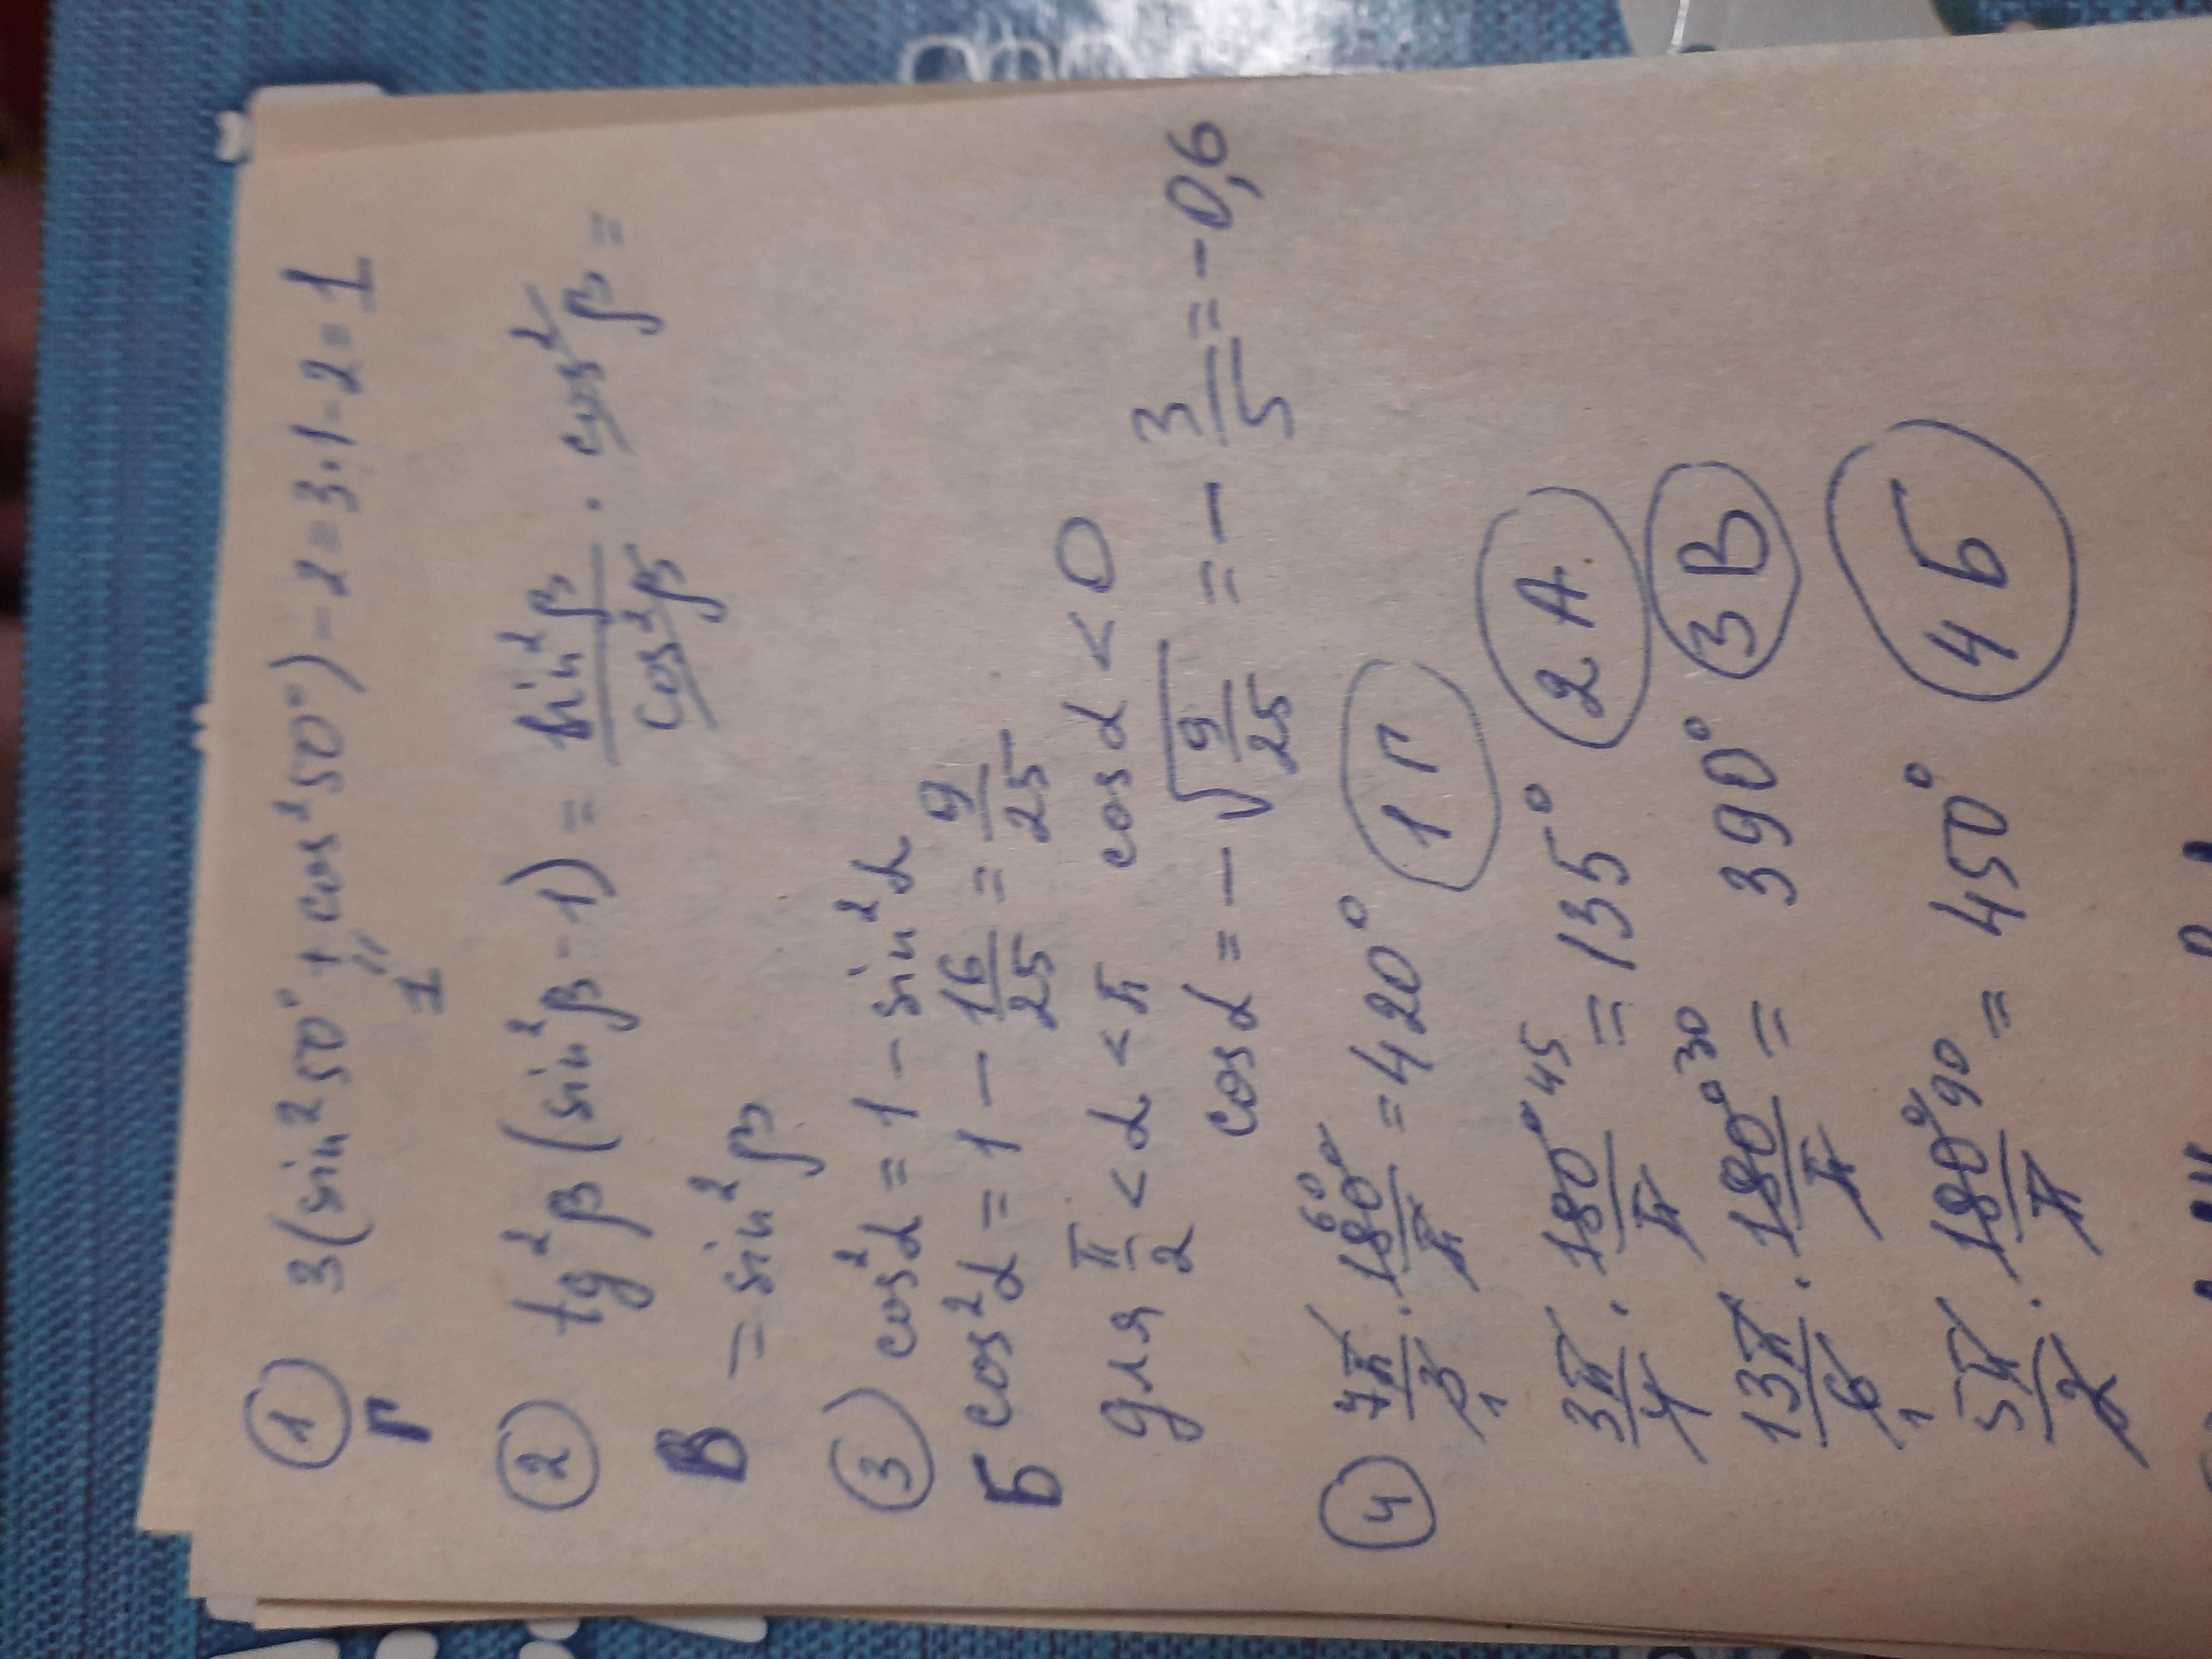 ① 3(sin²50° + cos²50°) - 2 = 3·1-2=1
Г
"
1
② tg²β(sin²β-1) = sin²β/cos²β · cos²β =
В = sin²β
③ cos²α = 1 - sin²α
Б cos²α = 1 - 16/25 = 9/25
для π/2 < α < π cos α < 0
cos α = - √(9/25) = - 3/5 = -0,6
④ 7π/3 · 180°/π = 420° 1 Г
60
1
3π/4 · 180°/π = 135° 2 А.
45
13π/6 · 180°/π = 390° 3 В
30
1
5π/2 · 180°/π = 450° 4 Б
90